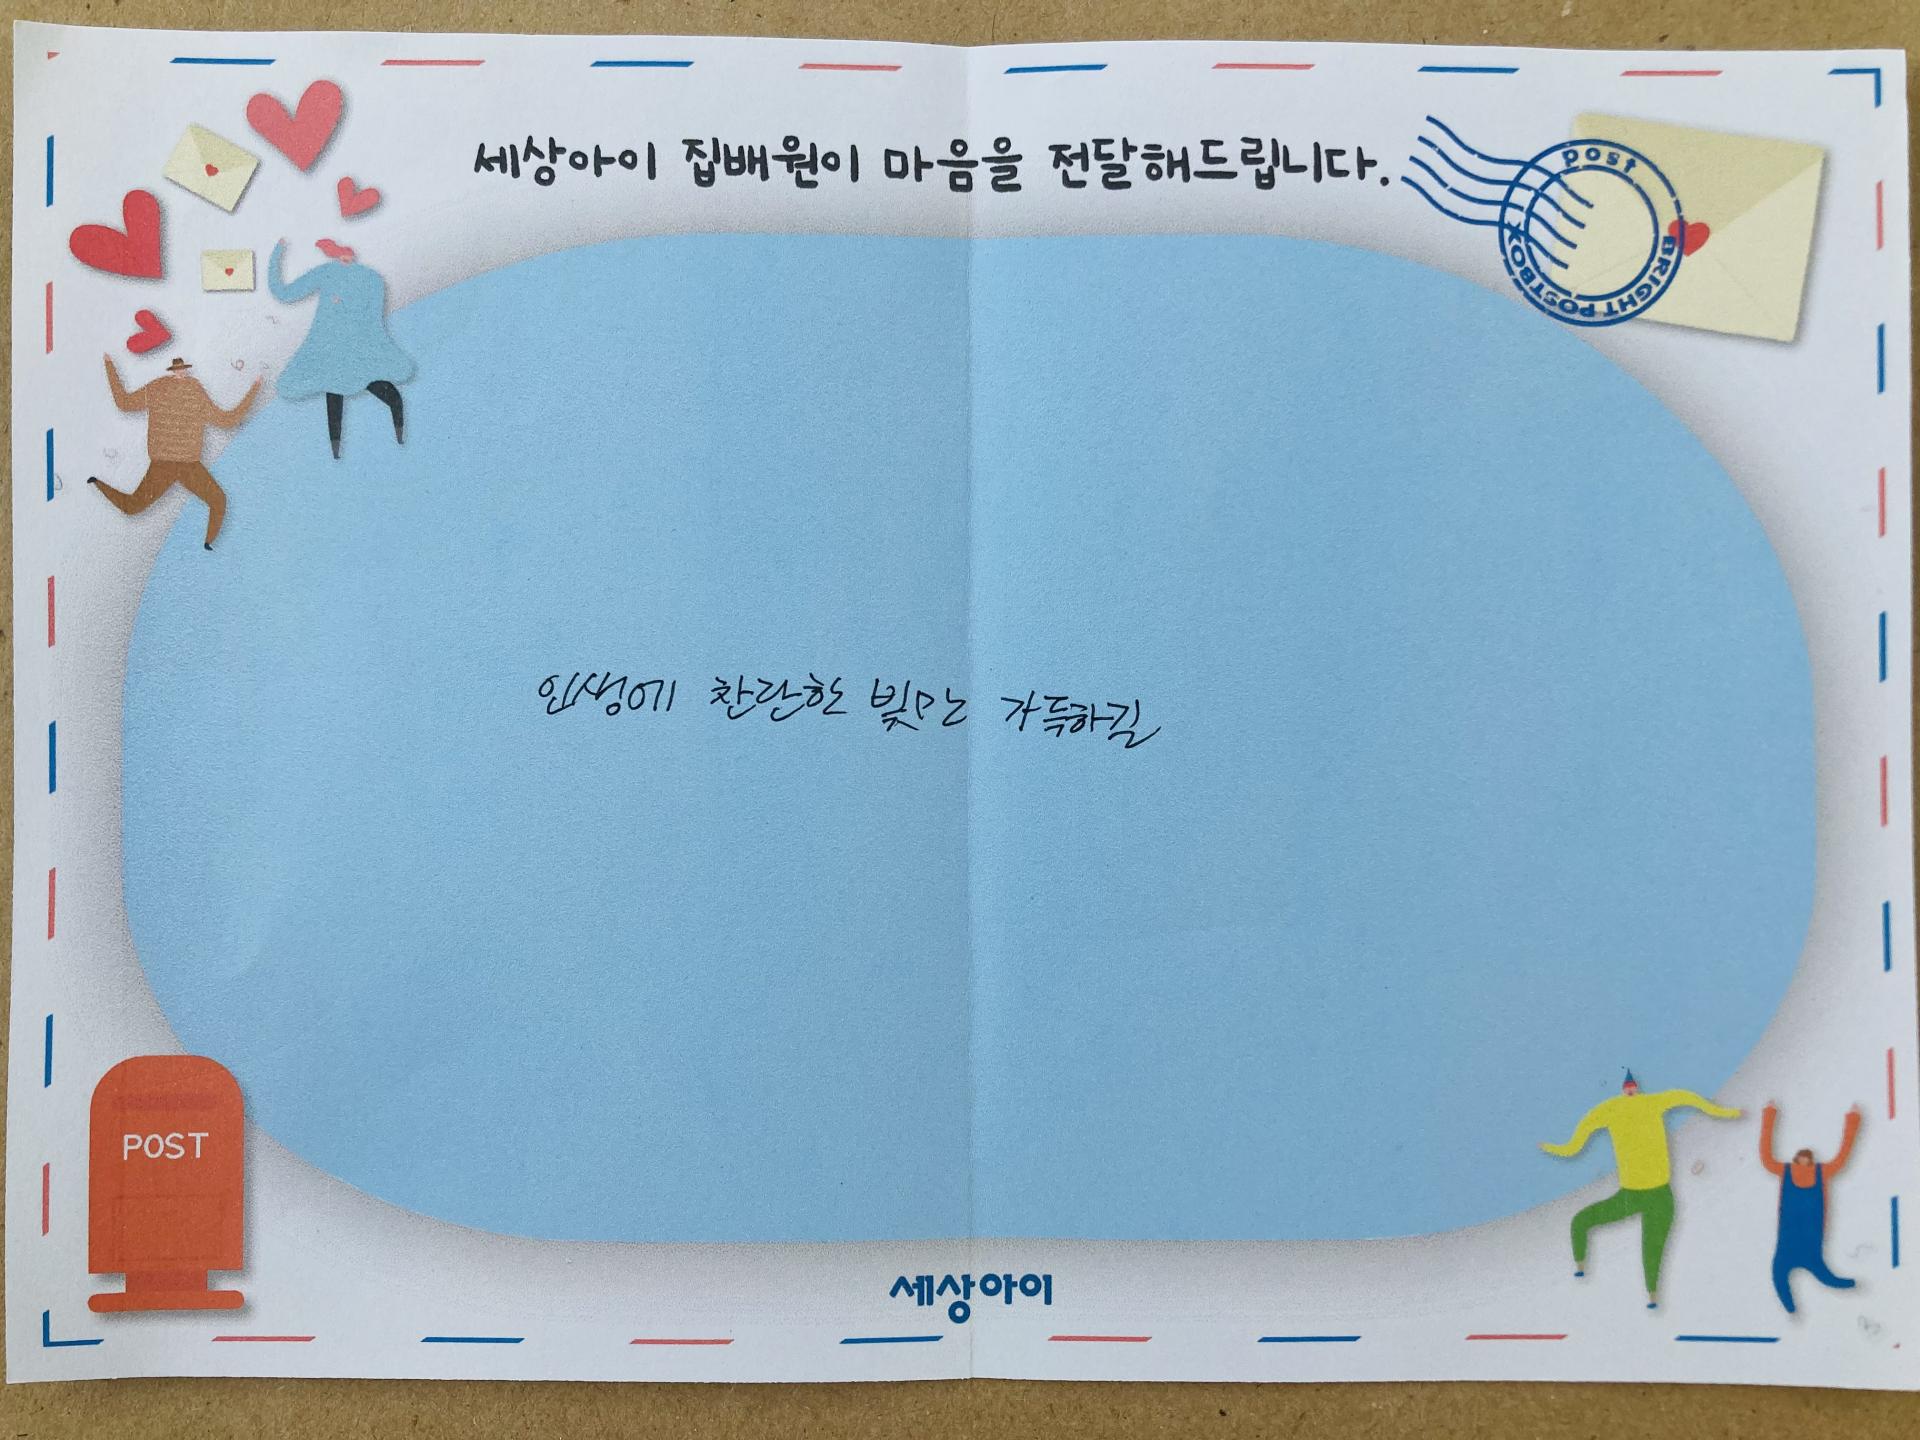 세상아이 집배원이 마음을 전달해드립니다.
post
BRIGHT POSTBOX
인생에 찬란한 빛만 가득하길
POST
세상아이